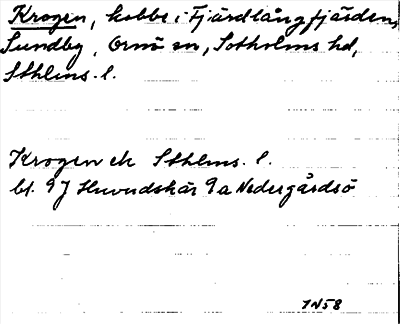 Krogen, kobbe i Fjärdlångfjärden,
Sundby, Ornö sn, Sotholms hd,
Sthlms. l.
Krogen ek Sthlms. l.
bl. 9J Huvudskär 9a Nedergårdsö
1N58